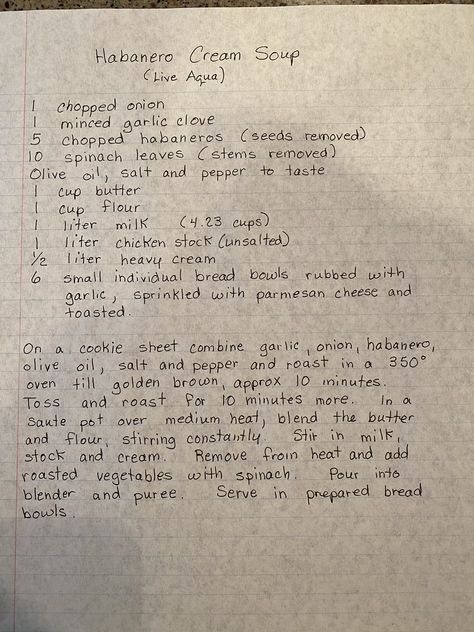 Habanero Cream Soup
(Live Aqua)
1 chopped onion
1 minced garlic clove
5 chopped habaneros (seeds removed)
10 spinach leaves (stems removed)
Olive oil, salt and pepper to taste
1 cup butter
1 cup flour
1 liter milk (4.23 cups)
1 liter chicken stock (unsalted)
½ liter heavy cream
6 small individual bread bowls rubbed with
garlic, sprinkled with parmesan cheese and
toasted.
On a cookie sheet combine garlic, onion, habanero,
olive oil, salt and pepper and roast in a 350°
oven till golden brown, approx 10 minutes.
Toss and roast for 10 minutes more. In a
saute pot over medium heat, blend the butter
and flour, stirring constantly. Stir in milk,
stock and cream. Remove from heat and add
roasted vegetables with spinach. Pour into
blender and puree. Serve in prepared bread
bowls.